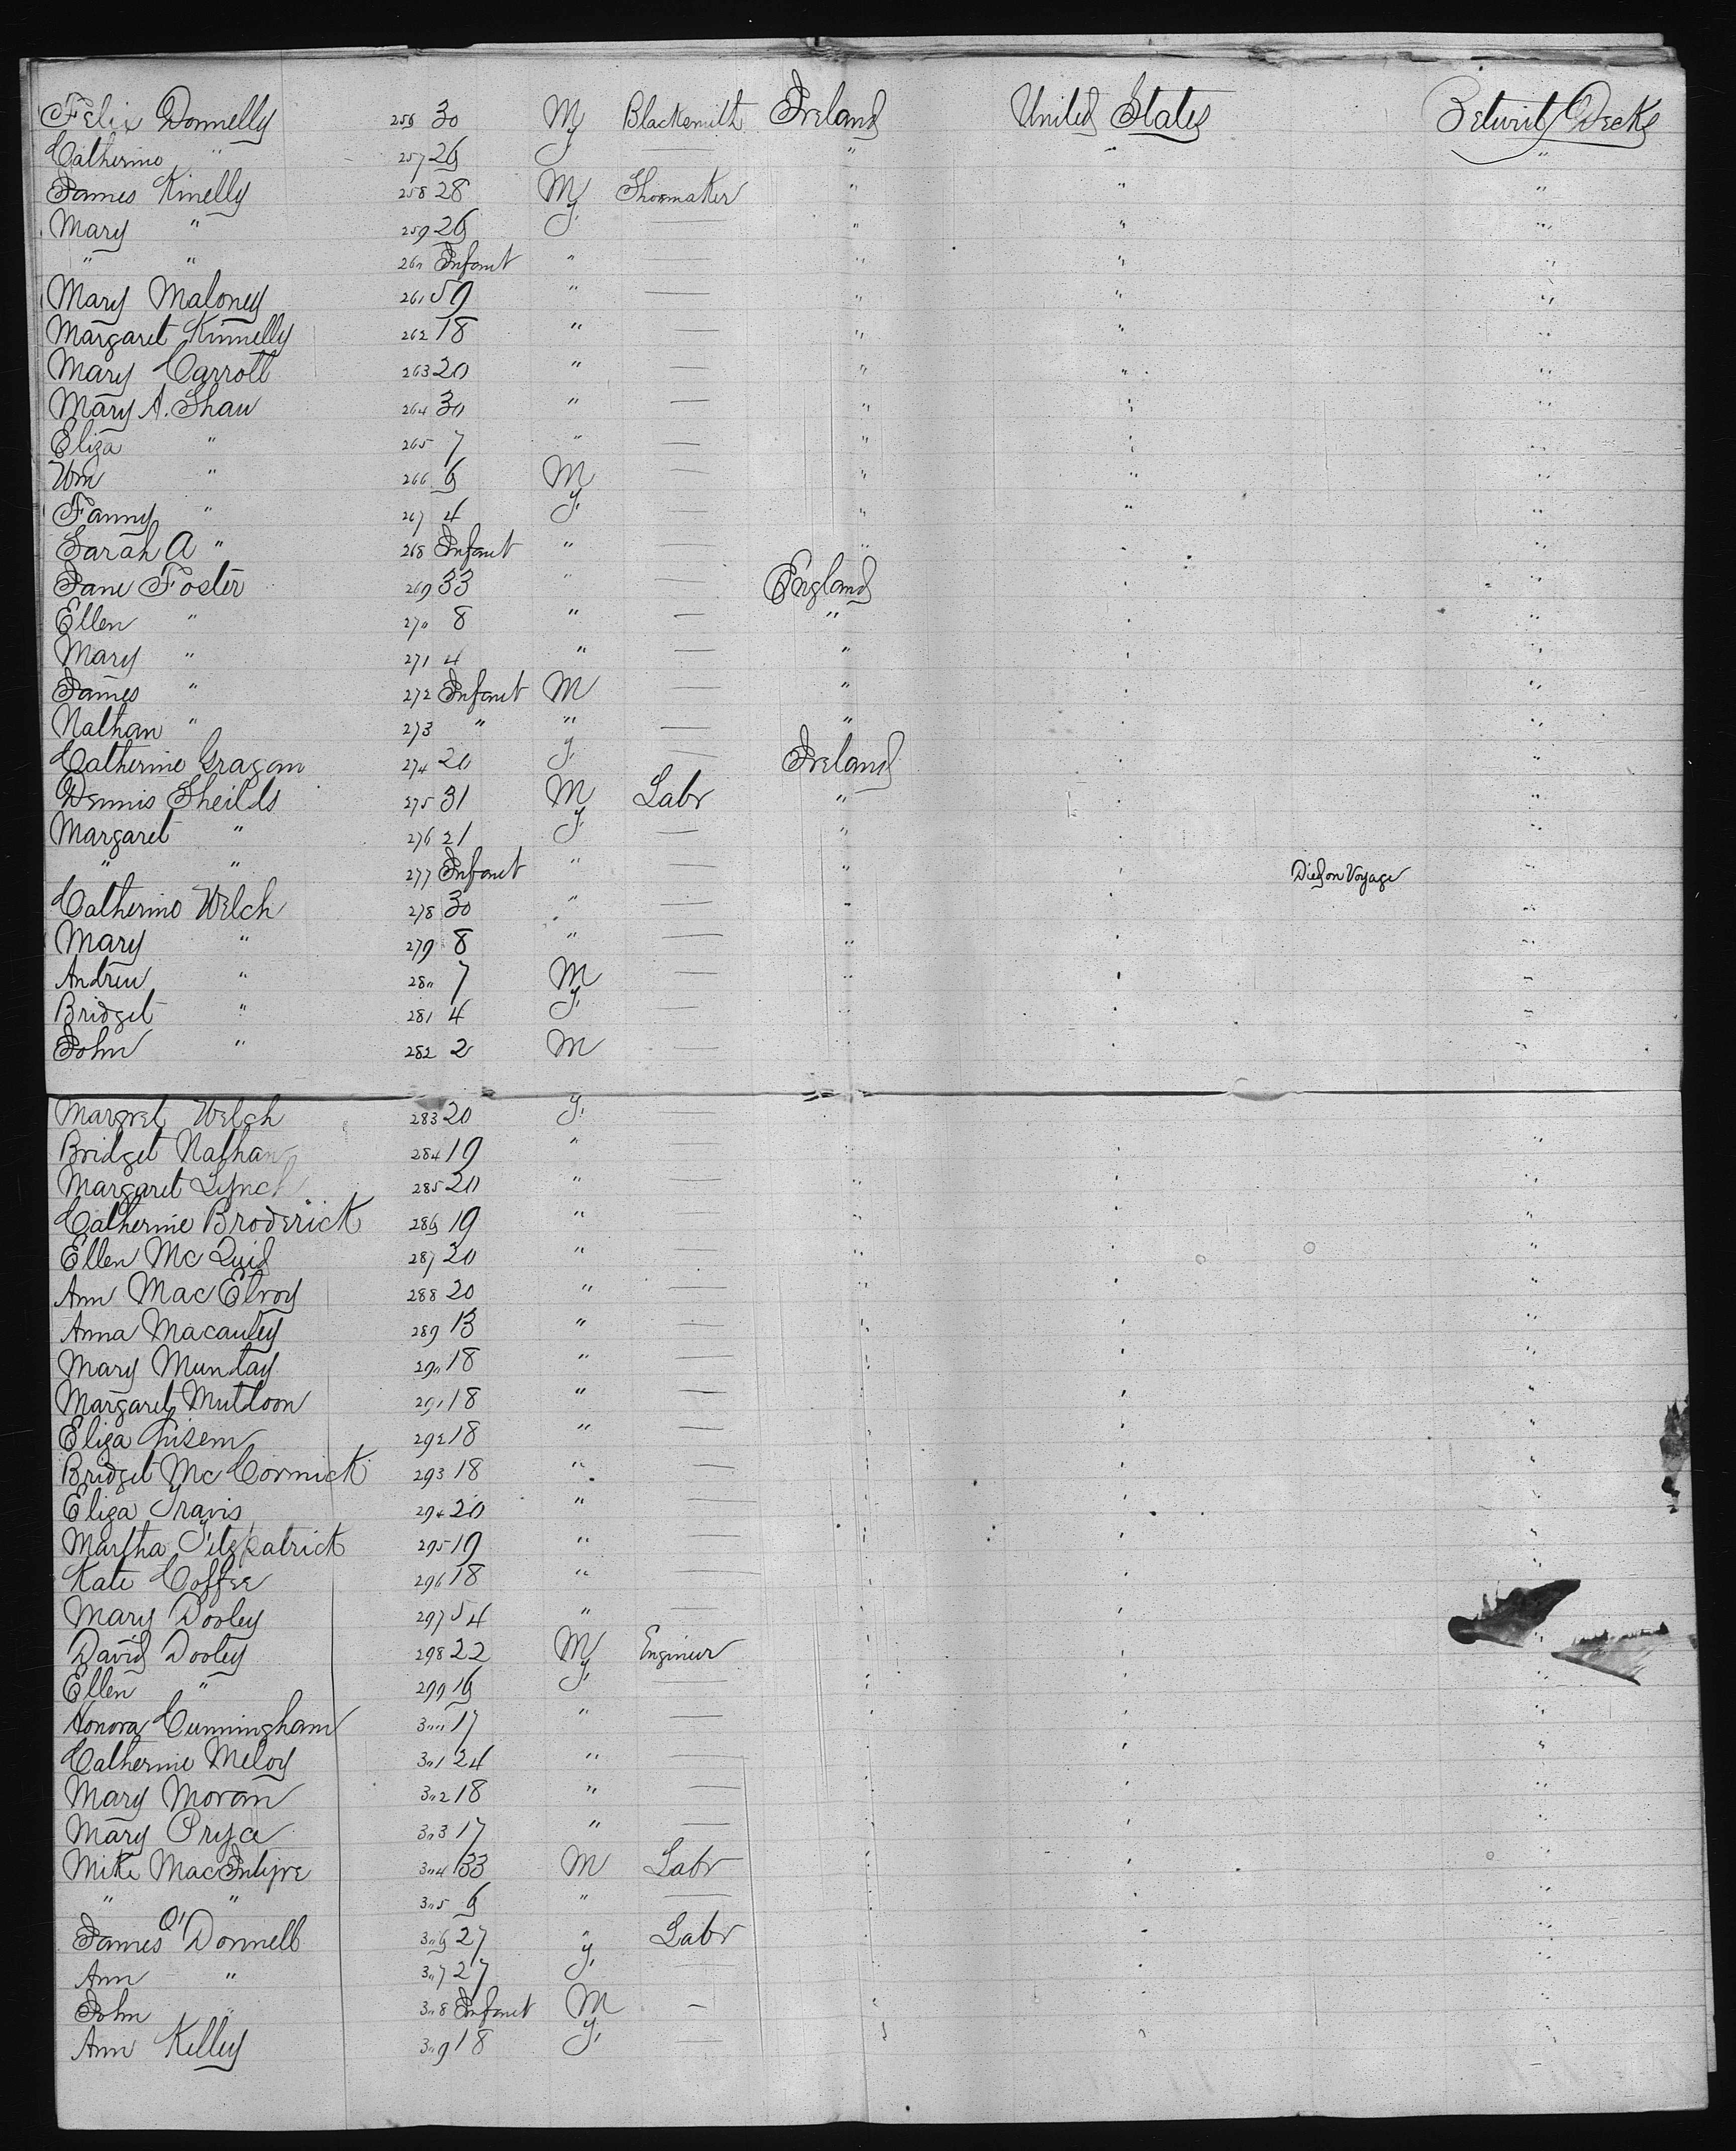 Felix Donnelly 256 30 M Blacksmith Ireland United States Betwixt Decks
Catherine " 257 26 F — " " "
James Kinelly 258 28 M Shoemaker " " "
Mary " 259 26 F — " " "
" " 260 Infant " — " " "
Mary Maloney 261 59 " — " " "
Margaret Kinnelly 262 18 " — " " "
Mary Carroll 263 20 " — " " "
Mary A. Shaw 264 30 " — " " "
Eliza " 265 7 " — " " "
Wm " 266 6 M — " " "
Fanny " 267 4 F — " " "
Sarah A " 268 Infant " — " " "
Jane Foster 269 33 " — England " "
Ellen " 270 8 " — " " "
Mary " 271 4 " — " " "
James " 272 Infant M — " " "
Nathan " 273 " " — " " "
Catherine Gragan 274 20 F — Ireland " "
Dennis Sheilds 275 31 M Labr " " "
Margaret " 276 21 F — " " "
" " 277 Infant " — " " Died on Voyage "
Catherine Welch 278 30 " — " " "
Mary " 279 8 " — " " "
Andrew " 280 7 M — " " "
Bridget " 281 4 F — " " "
John " 282 2 M — " " "
Margret Welch 283 20 F
Bridget Nathan 284 19 " — " " "
Margaret Lynch 285 20 " — " " "
Catherine Broderick 286 19 " — " " "
Ellen Mc Quid 287 20 " — " " "
Ann Mac Elroy 288 20 " — " " "
Anna Macauley 289 13 " — " " "
Mary Munday 290 18 " — " " "
Margaret Muldoon 291 18 " — " " "
Eliza 292 18 " — " " "
Bridget Mc Cormick 293 18 " — " " "
Eliza Travis 294 20 " — " " "
Martha Fitzpatrick 295 19 " — " " "
Kate Coffee 296 18 " — " " "
Mary Dooley 297 54 " — " " "
David Dooley 298 22 M Engineer " " "
Ellen " 299 16 F — " " "
Honora Cunningham 300 17 " — " " "
Catherine Meloy 301 24 " — " " "
Mary Moran 302 18 " — " " "
Mary Pryce 303 17 " — " " "
Mike MacIntyre 304 33 M Labr " " "
" " 305 6 " — " " "
James O'Donnell 306 27 " Labr " " "
Ann " 307 27 F — " " "
John " 308 Infant M — " " "
Ann Kelley 309 18 F — " " "